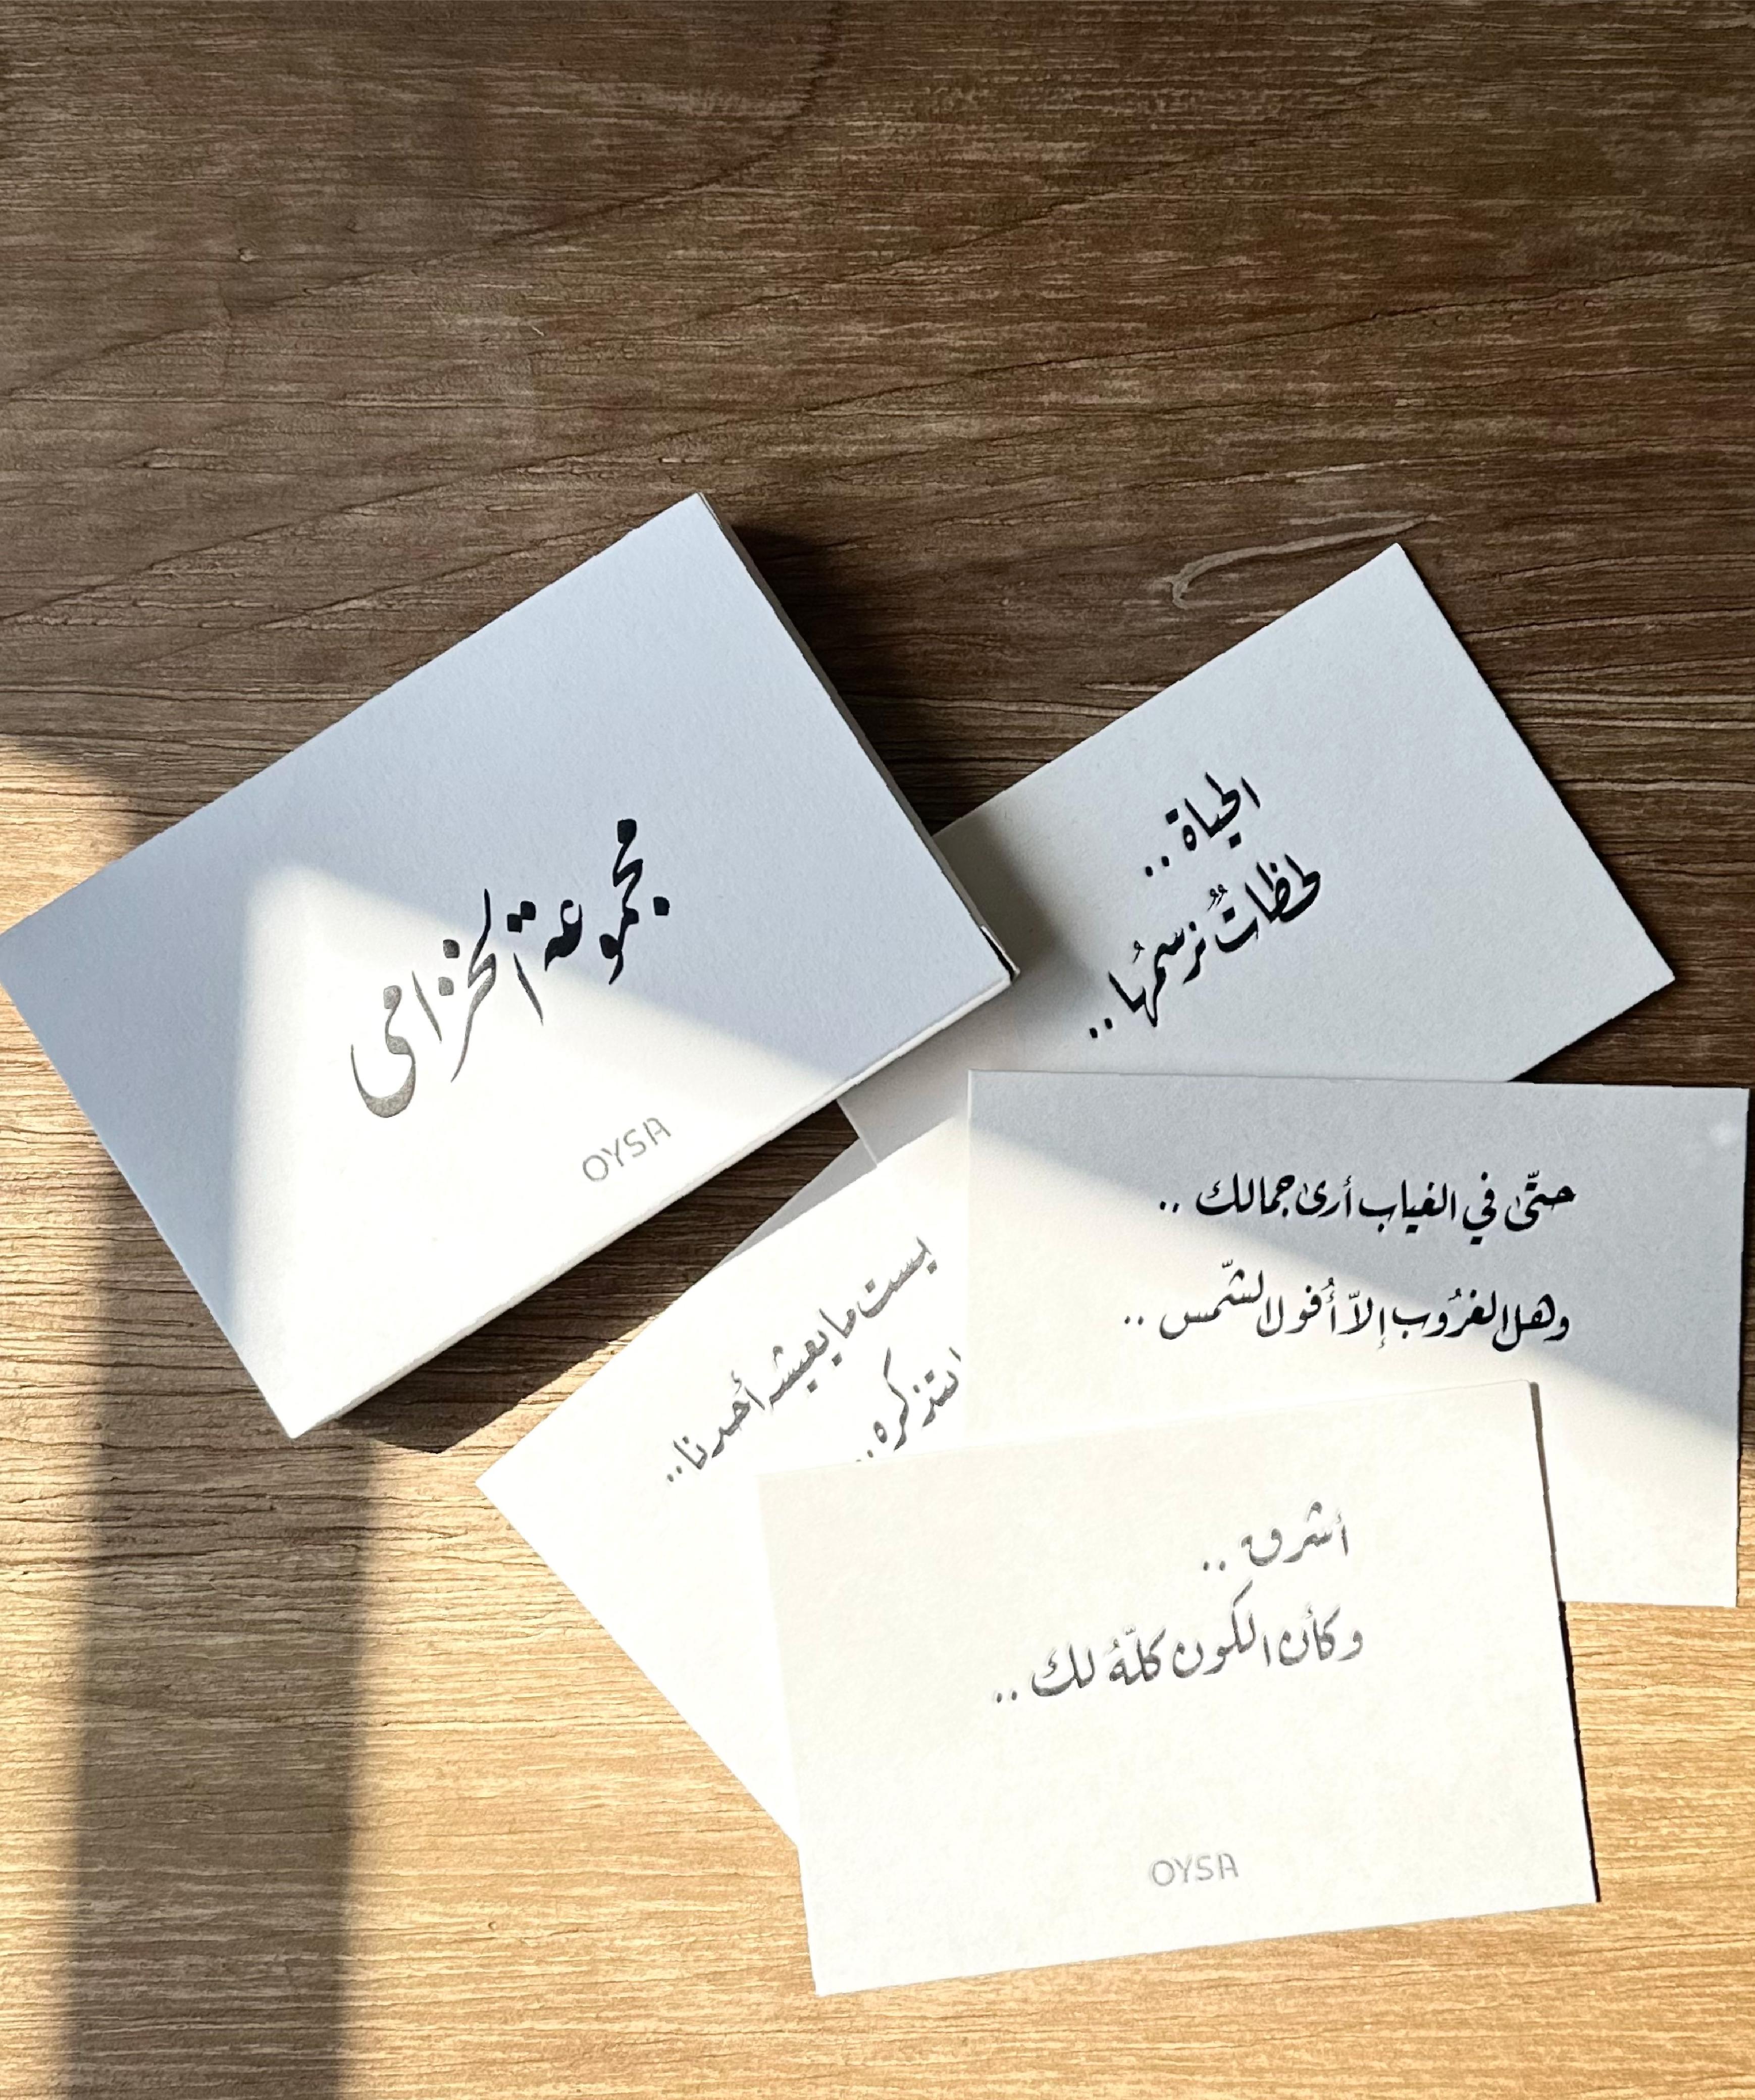 مجموعة الخزامى
OYSA
الحياة..
لحظاتٌ نرسمُها..
حتّى في الغياب أرى جمالك..
وهل الغرُوب إلاّ أُفول الشّمس..
يست ما يعيشه أحدنا..
لتذكره..
أشرق..
وكأن الكون كلّهُ لك..
OYSA